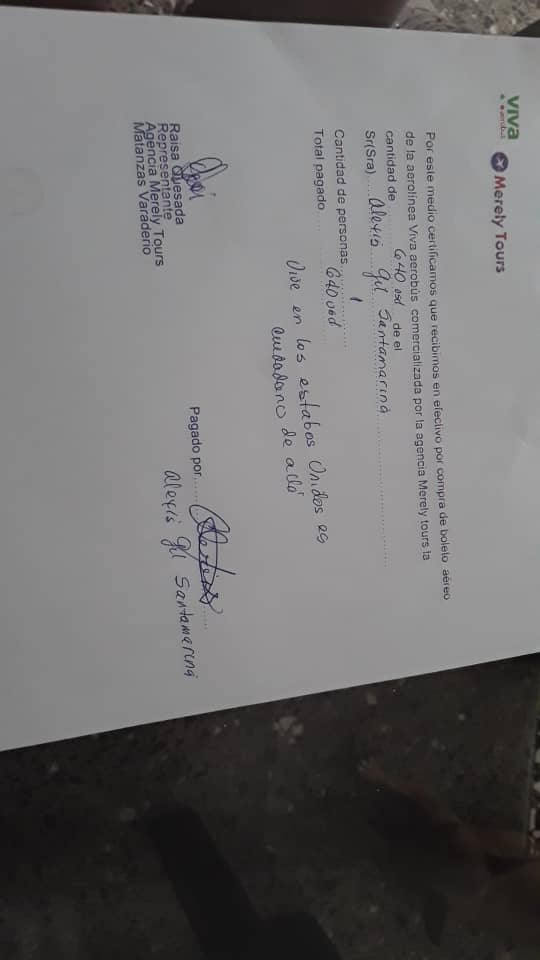 viva
aerobus
Merely Tours
Por este medio certificamos que recibimos en efectivo por compra de boleto aéreo
de la aerolínea Viva aerobús comercializada por la agencia Merely tours la
cantidad de 640 usd de el
Sr(Sra).... Alexis Gil Santamarina
Cantidad de personas 1
Total pagado 640 usd
Vive en los estabos Unidos es
ciudadano de allá
Raisa Quesada
Representante
Agencia Merely Tours
Matanzas Varaderio
Pagado por......
Alexis Gil Santamarina